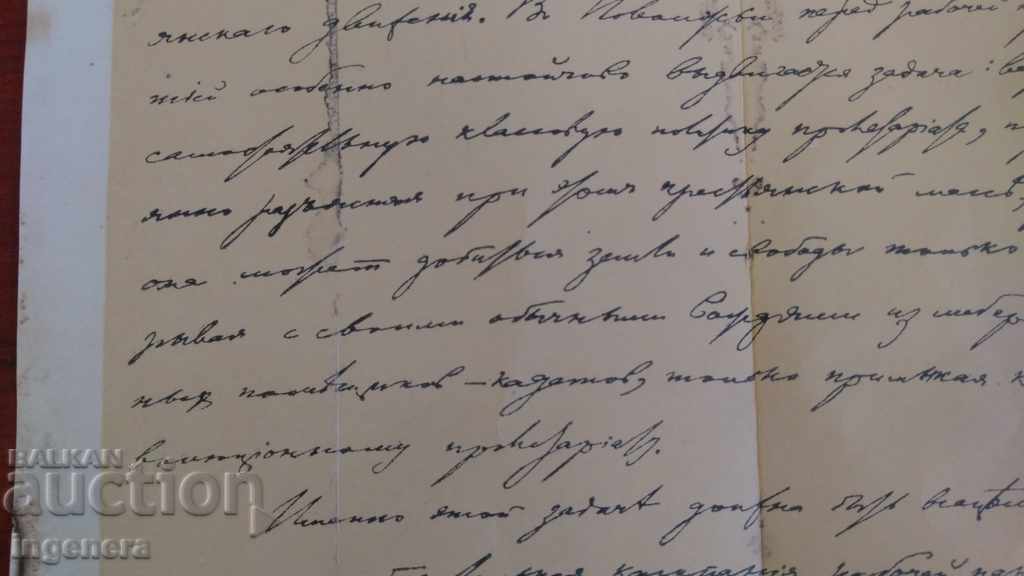 янскаго движенія. В Поволжьи перед рабочей п
тіей особенно настойчиво выдвигается задача: ве
самостоятельную классовую политику пролетаріата,
янно разъясняя при этом крестьянской массѣ,
она может добиться земли и свободы только
рывая с своими обычными вождями из либер
ных помѣщиков – кадетов, только примыкая к
волюціонному пролетаріату.
Именно этой задачѣ должна быть
кампанія рабочей
BALKAN
auction
ingenera